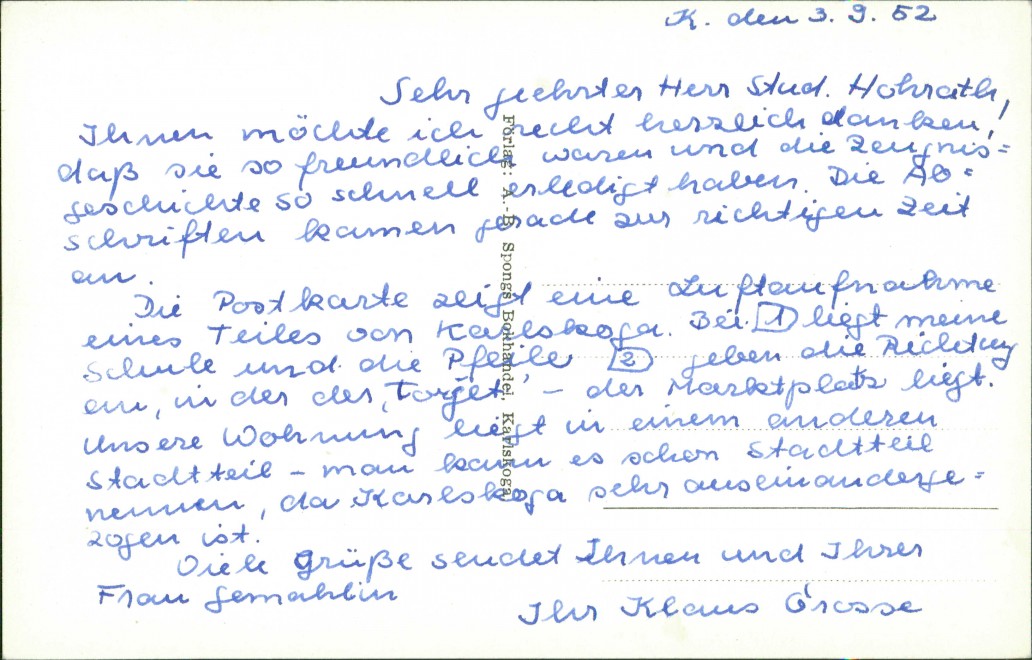 K. den 3. 9. 52
Sehr geehrter Herr Stud. Hohrath,
Ihnen möchte ich recht herzlich danken,
daß sie so freundlich waren und die Zeugnis=
geschichte so schnell erledigt haben. Die Ab=
schriften kamen gerade zur richtigen Zeit
an.
Die Postkarte zeigt eine Luftaufnahme
eines Teiles von Karlskoga. Bei 1 liegt meine
Schule und die Pfeile 2 geben die Richtung
an, in der der „Torget" – der Marktplatz liegt.
Unsere Wohnung liegt in einem anderen
Stadtteil – man kann es schon Stadtteil
nennen, da Karlskoga sehr auseinanderge=
zogen ist.
Viele Grüße sendet Ihnen und Ihrer
Frau Gemahlin
Ihr Klaus Grosse
Förlag: A.-B. Spongs Bokhandel, Karlskoga